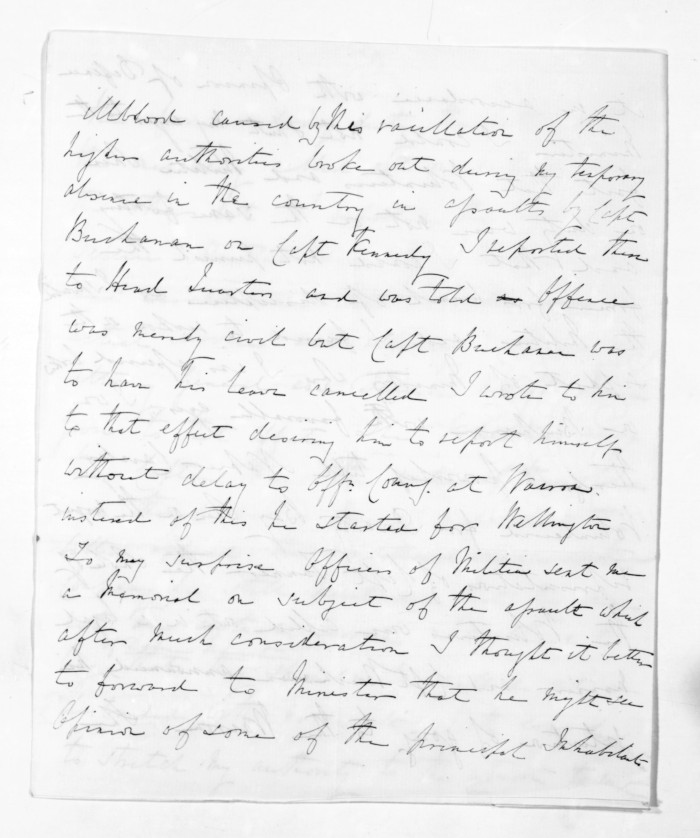 illblood caused by this vacillation of the
higher authorities broke out during my temporary
absence in the country in assaults by Capt
Buchanan on Capt Kennedy I reported these
to Head Quarters and was told Offence
was merely civil but Capt Buchanan was
to have his leave cancelled I wrote to him
to that effect desiring him to report himself
without delay to Offr. Comg. at Wairoa.
instead of this he started for Wellington
To my surprise Officers of Militia sent me
a Memorial on subject of the assault which
after much consideration I thought it better
to forward to Minister that he might see
Opinion of some of the principal Inhabitants